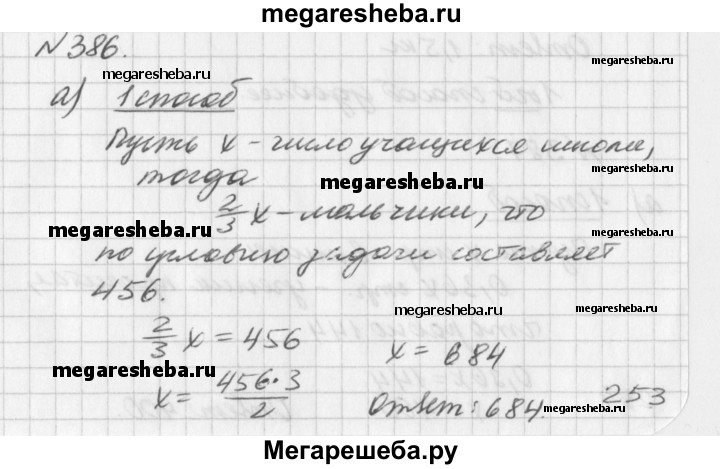 megaresheba.ru
№386.
megaresheba.ru
megaresheba.ru
а) 1 способ
Пусть x - число учащихся школы,
megaresheba.ru
тогда
megaresheba.ru
megaresheba.ru
2/3 x - мальчики, что
megaresheba.ru
по условию задачи составляет
456.
megaresheba.ru
2/3 x = 456
x = 684
megaresheba.ru
megaresheba.ru
x = 456·3/2
Ответ: 684.
253
megaresheba.ru
megaresheba.ru
Мегарешеба.ру